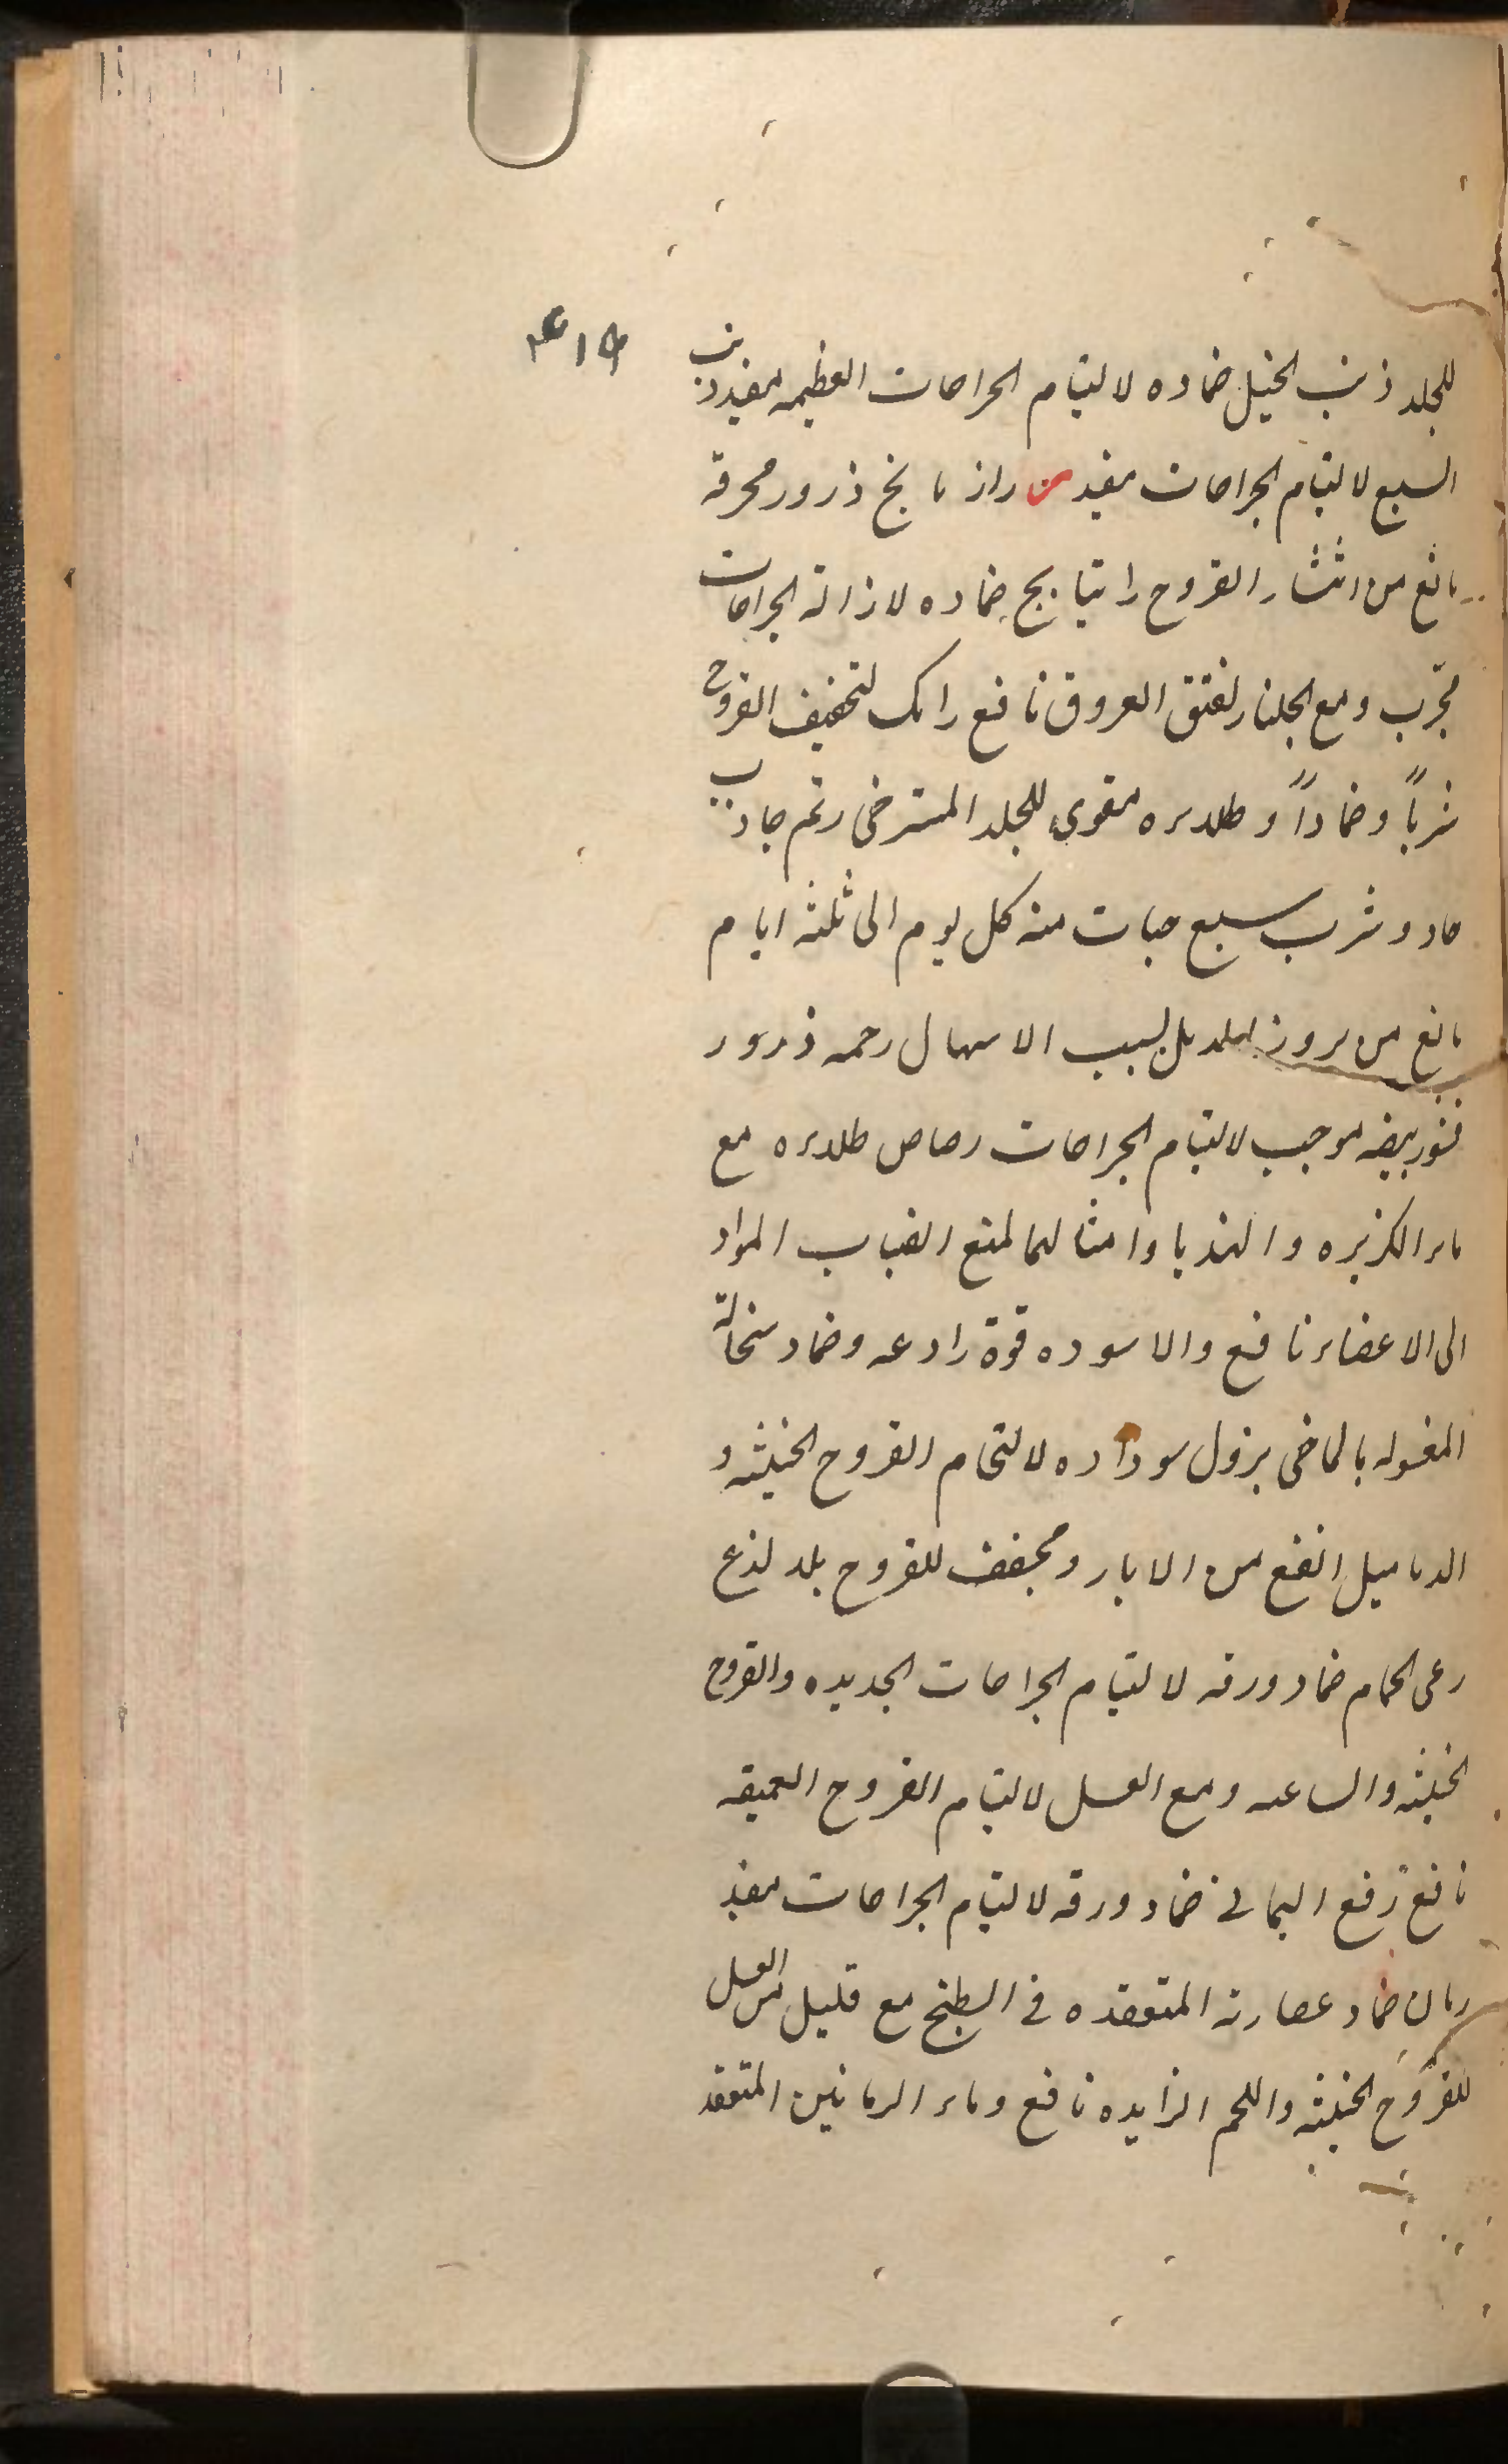 للجلد ذنب الخيل ضماده لالتيام الجراحات العظيمه مفيد ذنب
السبع لالتيام الجراحات مفيد س رازيانج ذرور محرقه
مانع من انتشار القروح راتيانج ضماده لازالة الجراحات
مجرب ومع الجلنار لفتق العروق نافع رامك لتجفيف القروح
شرباً وضماداً وطلاءه مقوى للجلد المسترخى رتم جاذب
حاد وشرب سبع حبات منه كل يوم الى ثلثه ايام
مانع من بروز الدماميل بسبب الاسهال رخمه ذرور
قشور بيضه موجب لالتيام الجراحات رصاص طلاءه مع
ماء الكزبره والهندبا وامثالها لمنع انصباب المواد
الى الاعضاء نافع والاسوده قوة رادعه وضماد سخالة
المغسوله بالماضى يزول سوداره لالتحام القروح الخبيثه و
الدماميل انفع من الابار ومجفف للقروح بلا لذع
رعى الحمام ضماد ورقه لالتيام الجراحات الجديده والقروح
الخبيثه والساعيه ومع العسل لالتيام القروح العميقه
نافع رقع اليمانى ضماد ورقه لالتيام الجراحات مفيد
رمان ضماد عصارته المتعقده فى الطبخ مع قليل من العسل
للقروح الخبيثه واللحم الزايده نافع وماء الرمانين المتعقد